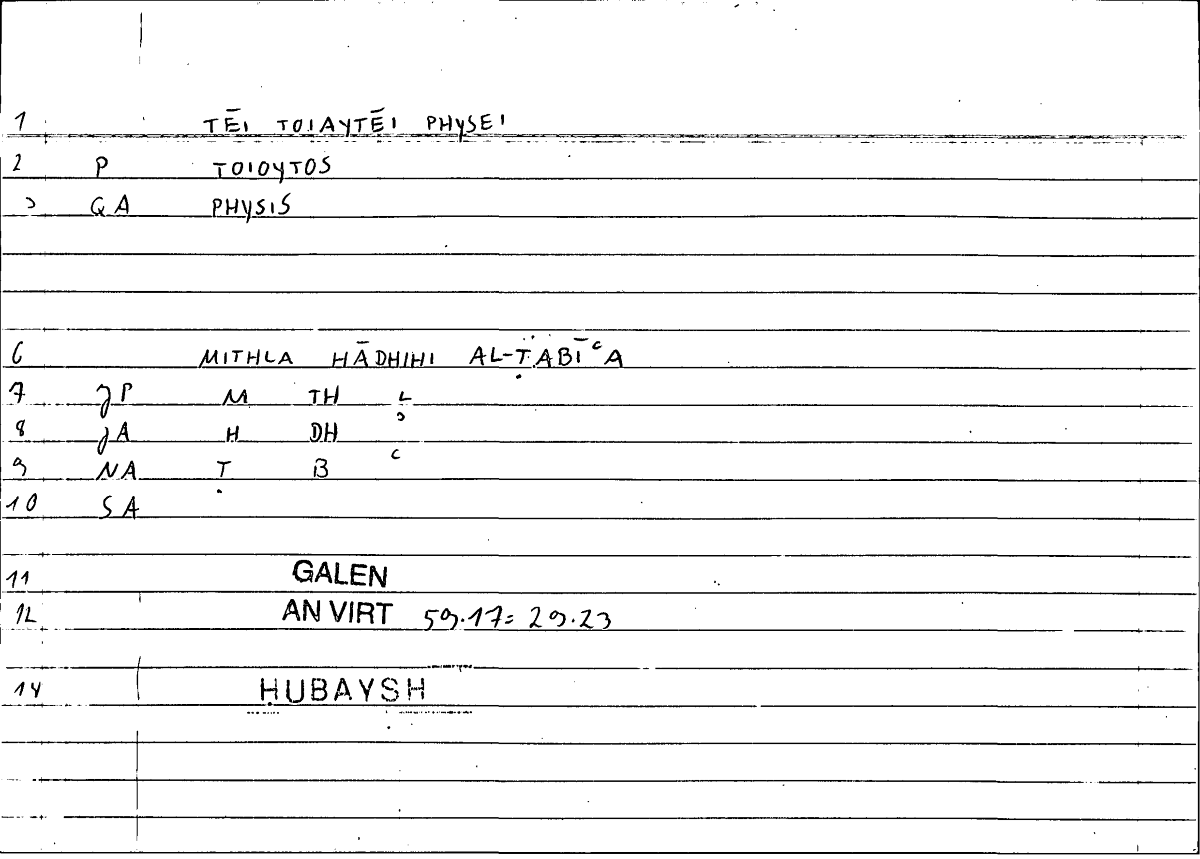 1 TĒI TOIAYTĒI PHYSEI
2 P TOIOYTOS
3 QA PHYSIS
6 MITHLA HĀDHIHI AL-ṬABĪʿA
7 JP M TH L
8 JA H DH ʾ
9 NA Ṭ B ʿ
10 SA
11 GALEN
12 AN VIRT 59.17 = 29.23
14 ḤUBAYSH